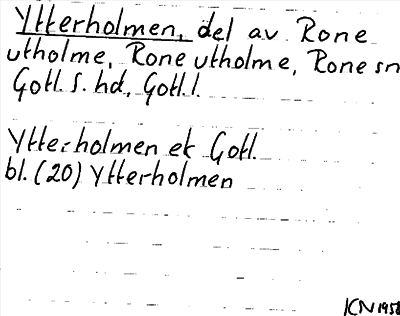 Ytterholmen, del av Rone
utholme, Rone utholme, Rone sn
Gotl. S. hd, Gotl. l.
Ytterholmen ek Gotl.
bl. (20) Ytterholmen
ICN 1958